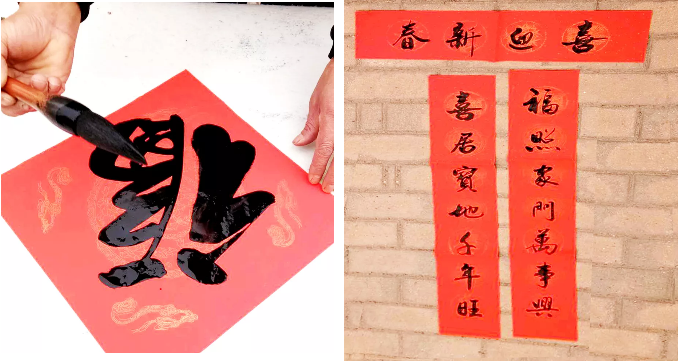 福
喜迎新春
福照家門萬事興
喜居寶地千年旺